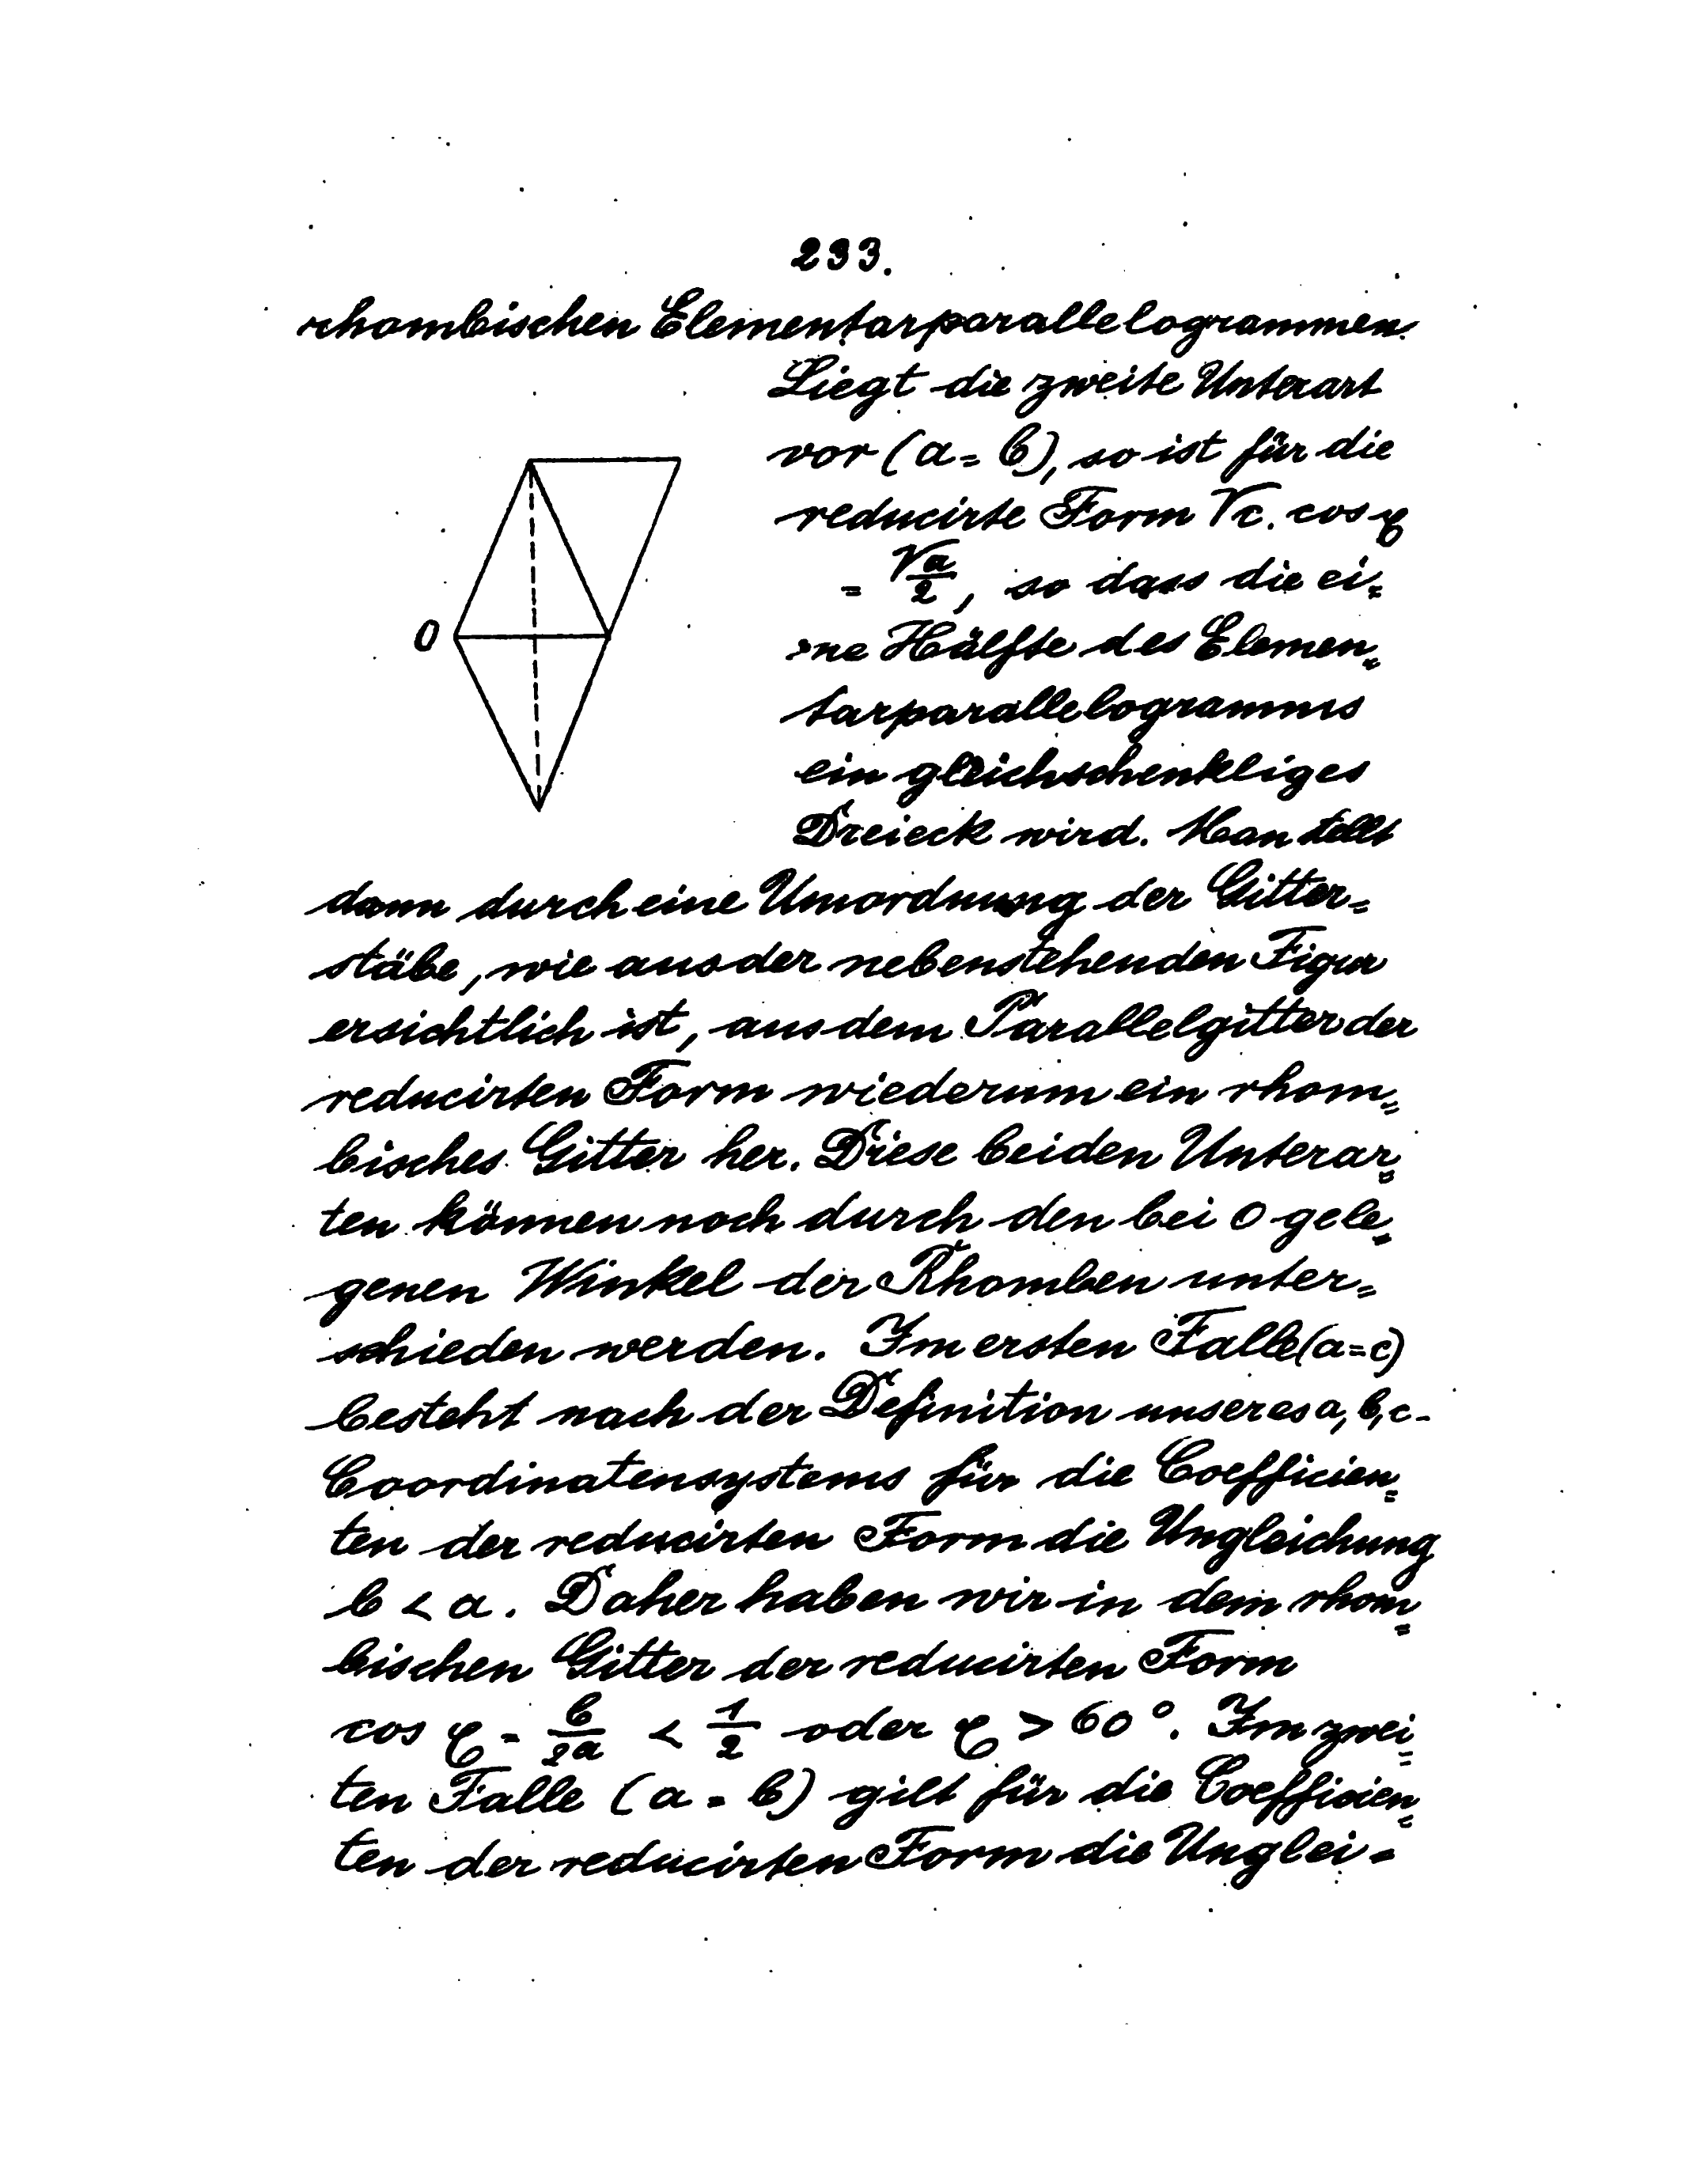 233.
rhombischen Elementarparallelogrammen.
Liegt die zweite Unterart
vor (a = b), so ist für die
reducirte Form √c. cos φ
= √a/2, so dass die ei=
=ne Hälfte des Elemen=
tarparallelogramms
ein gleichschenkliges
Dreieck wird. Man stellt
dann durch eine Umordnung der Gitter=
stäbe, wie aus der nebenstehenden Figur
ersichtlich ist, aus dem Parallelgitter der
reducirten Form wiederum ein rhom=
bisches Gitter her. Diese beiden Unterar=
ten können noch durch den bei O gele=
genen Winkel der Rhomben unter=
schieden werden. Im ersten Falle (a=c)
besteht nach der Definition unseres a, b, c-
Coordinatensystems für die Coefficien=
ten der reducirten Form die Ungleichung
b < a. Daher haben wir in dem rhom=
bischen Gitter der reducirten Form
cos φ = b/2a < 1/2 oder φ > 60°. Im zwei=
ten Falle (a = b) gilt für die Coefficien=
ten der reducirten Form die Unglei=
O